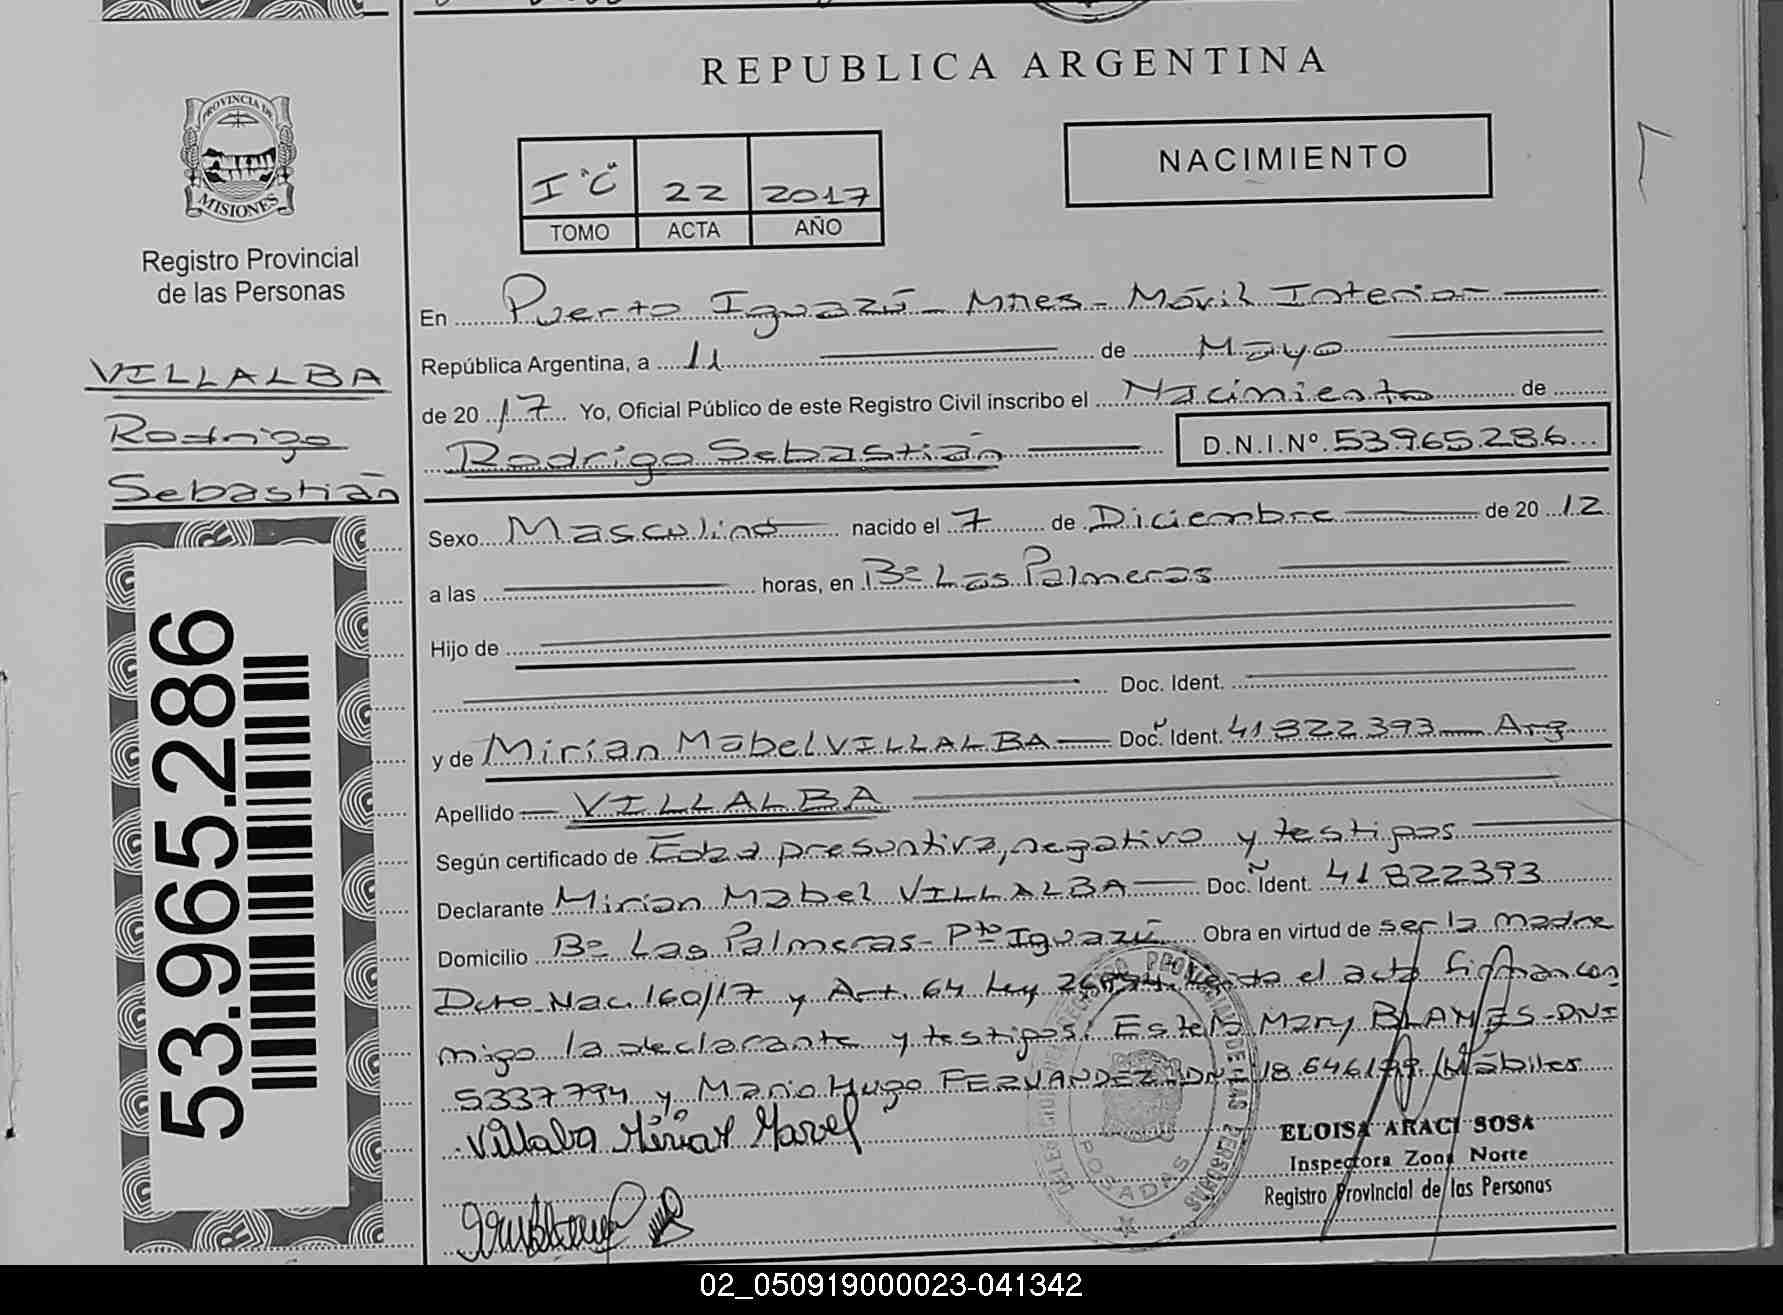 REPUBLICA ARGENTINA
PROVINCIA DE
MISIONES
Registro Provincial
de las Personas
I "C" 22 2017
TOMO ACTA AÑO
NACIMIENTO
VILLALBA
Rodrigo
Sebastián
53.965.286
En Puerto Iguazú - Mnes - Móvil Interior
República Argentina, a 11 de Mayo
de 2017 Yo, Oficial Público de este Registro Civil inscribo el Nacimiento de
Rodrigo Sebastián D.N.I.Nº 53965286
Sexo Masculino nacido el 7 de Diciembre de 2012
a las horas, en Bº Las Palmeras
Hijo de
Doc. Ident.
y de Mirian Mabel VILLALBA Doc. Ident. 41822393 - Arg
Apellido VILLALBA
Según certificado de Edad presuntiva, negativo y testigos
Declarante Mirian Mabel VILLALBA Doc. Ident. 41822393
Domicilio Bº Las Palmeras - Pto Iguazú Obra en virtud de ser la madre
Dcto Nac. 160/17 y Art. 64 Ley el acta firman con
migo la declarante y testigos: Estela Mary DNI
5337794 y Mario Hugo FERNANDEZ DNI Hábiles
Villalba Mirian Mavel
POSADAS
ELOISA ARACI SOSA
Inspectora Zona Norte
Registro Provincial de las Personas
02_050919000023-041342